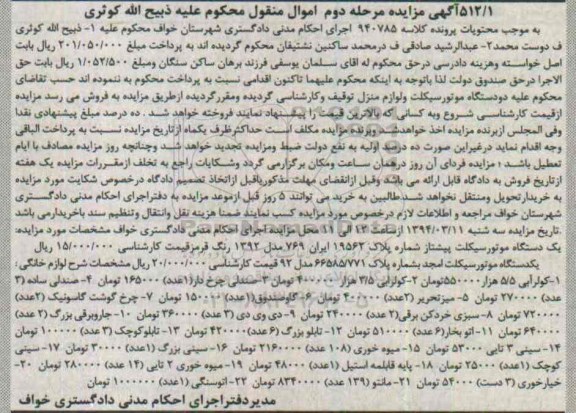 ۵۱۲/۱آگهی مزایده مرحله دوم اموال منقول محکوم علیه ذبیح الله کوثری
به موجب محتویات پرونده کلاسه ۹۴۰۷۸۵ اجرای احکام مدنی دادگستری شهرستان خواف محکوم علیه ۱- ذبیح الله کوثری
ف دوست محمد۲- عبدالرشید صادقی ف درمحمد ساکنین نشتیفان محکوم گردیده اند به پرداخت مبلغ ۲۰۱/۰۵۰/۰۰۰ ریال بابت
اصل خواسته وهزینه دادرسی درحق محکوم له اقای سلمان یوسفی فرزند برهان ساکن سنگان ومبلغ ۱/۰۵۲/۵۰۰ ریال بابت حق
الاجرا درحق صندوق دولت لذا باتوجه به اینکه محکوم علیهما تاکنون اقدامی نسبت به پرداخت محکوم به ننموده اند حسب تقاضای
محکوم علیه دودستگاه موتورسیکلت ولوازم منزل توقیف وکارشناسی گردیده ومقررگردیده ازطریق مزایده به فروش می رسد مزایده
ازقیمت کارشناسی شروع وبه کسانی که بالاترین قیمت را پیشنهاد نمایند فروخته خواهد شد . ده درصد مبلغ پیشنهادی نقدا
وفی المجلس ازبرنده مزایده اخذ خواهدشد وبرنده مزایده مکلف است حداکثرظرف یکماه ازتاریخ مزایده نسبت به پرداخت الباقی
وجه اقدام نماید درغیراین صورت ده درصد اولیه به نفع دولت ضبط ومزایده تجدید خواهد شد وچنانچه روز مزایده مصادف با ایام
تعطیل باشد ؛ مزایده فردای آن روز درهمان ساعت ومکان برگزارمی گردد وشکایات راجع به تخلف ازمقررات مزایده یک هفته
ازتاریخ فروش به دادگاه قابل ارائه می باشد وقبل ازانقضای مهلت مذکوریاقبل ازاتخاذ تصمیم دادگاه درخصوص شکایت مورد مزایده
به خریدارتحویل ومنتقل نخواهد شدـطالبین به خرید می توانند ۵ روز قبل ازموعد مزایده به دفتراجرای احکام مدنی دادگستری
شهرستان خواف مراجعه و اطلاعات لازم درخصوص مورد مزایده کسب نمایند ضمنا هزینه نقل وانتقال وتنظیم سند باخریدارمی باشد
.تاریخ مزایده سه شنبه ۱۳۹۴/۰۳/۱۱ ازساعت ۱۲ الی ۱۱ محل مزایده اجرای احکام مدنی دادگستری خواف مشخصات مورد مزایده:
یک دستگاه موتورسیکلت پیشتاز شماره پلاک ۱۹۵۶۲ ایران ۷۶۹ مدل ۱۳۹۲ رنگ قرمزقیمت کارشناسی ۱۵/۰۰۰/۰۰۰ ریال
یکدستگاه موتورسیکلت امجد بشماره پلاک ۶۶۵۸۵/۷۷۱ مدل ۹۲ قیمت کارشناسی ۲۰/۰۰۰/۰۰۰ ریال مشخصات شرح لوازم خانگی:
۱-کولرآبی ۵/۵ هزار ۵۵۰۰۰۰تومان ۲- کولرآبی ۳/۵ هزار ۴۰۰۰۰۰ تومان ۳-صندلی چرخ دار(۱عدد) ۱۶۵۰۰۰ تومان ۴- صندلی ساده (۳
عدد) ۲۷۰۰۰۰ تومان ۵- میزتحریر (۲عدد) ۴۰۰۰۰۰ تومان ۶- گاوصندوق(۱عدد) ۱۵۰۰۰۰ تومان ۷- چرخ گوشت گاسونیک (۲عدد)
۷۲۰۰۰۰ تومان ۸- سبزی خردکن برقی(۲ عدد) ۲۴۰۰۰۰ تومان ۹- دی وی دی (۳ عدد) ۳۶۰۰۰۰ تومان ۱۰- جاروبرقی بزرگ (۲عدد)
۶۴۰۰۰۰ تومان ۱۱- اتو بخار(۶ عدد) ۵۱۰۰۰۰ تومان ۱۲- تابلو بزرگ (۶عدد) ۴۲۰۰۰۰ تومان ۱۳- تابلوکوچک (۳ عدد) ۱۰۰۰۰۰ تومان
۱۴- سینی ۳ تایی ۵۳۰۰۰ تومان ۱۵- میوه خوری (۱۰۸ عدد) ۲۱۶۰۰۰۰ تومان ۱۶- سینی بزرگ (۱عدد) ۳۰۰۰۰ تومان ۱۷- سینی
کوچک (۱عدد) ۲۵۰۰۰ تومان ۱۸- پایه قابلمه استیل (۱عدد) ۴۸۰۰۰ تومان ۱۹- میوه خوری ۲ تایی (۱۴ عدد) ۲۸۰۰۰۰ تومان ۲۰-
خیارخوری (۳ دست) ۵۴۰۰۰ تومان ۲۱- مانتو (۱۳۹ عدد) ۸۳۴۰۰۰۰ تومان ۲۲- اتوسنگی (۱عدد) ۱۰۰۰۰۰۰ تومان
مدیردفتراجرای احکام مدنی دادگستری خواف